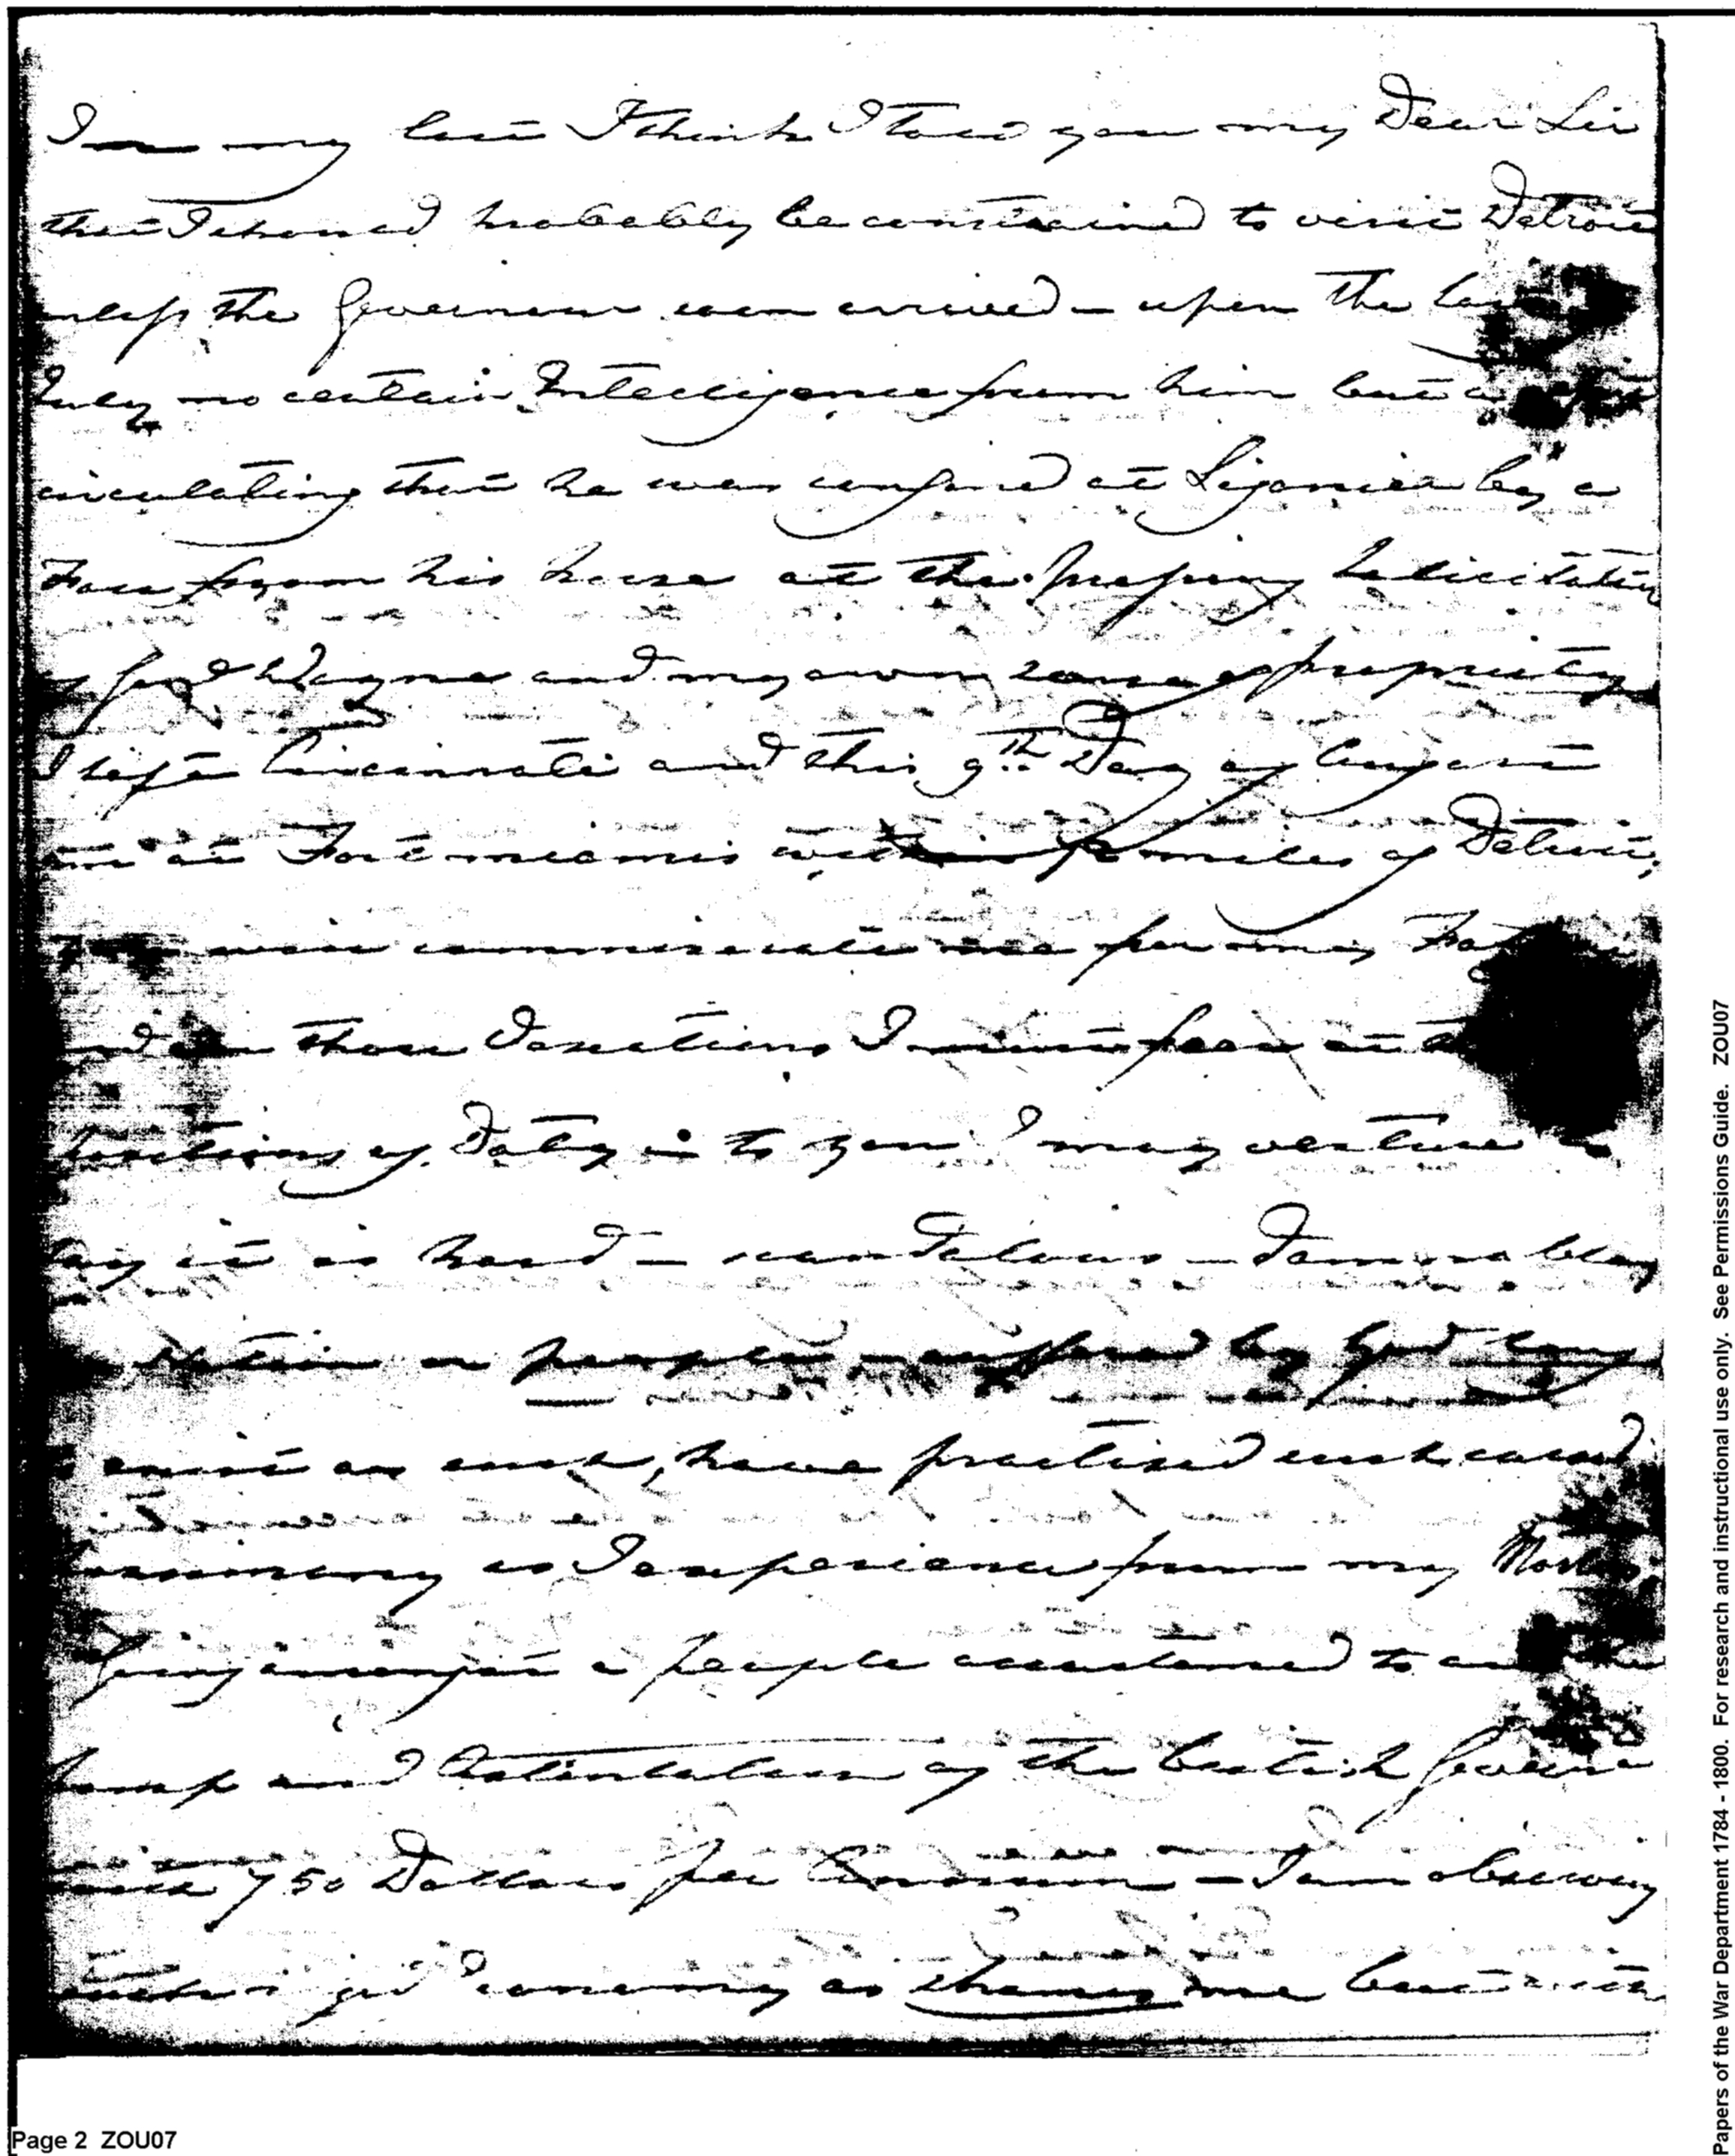 In my last I think I told you my Dear Sir
that I should probably be constrained to visit Detroit
unless the Governour soon arrived - upon the last
July no certain Intelligence from him but a
circulating that he was confined at Ligonier by a
Fall from his horse at the pressing Solicitation
of Genl Wayne and my own sense of propriety
I left Cincinnati and this 9th Day of August
am at Fort miamis within miles of Detroit,
will commiserate me for my
and those Vexations I must feel at
functions of Duty is to you I may venture to
say it is hard - scandalous - damnable
Nation or people suffered by God long
exist as such, have practised such
as I experience from my
going amongst a people accustomed to
Pomp and Ostentation of the british Govern
with 750 Dollars per Annum - I am observing
such rigid Economy as shames me but with
Page 2 ZOU07
Papers of the War Department 1784 - 1800. For research and instructional use only. See Permissions Guide. ZOU07